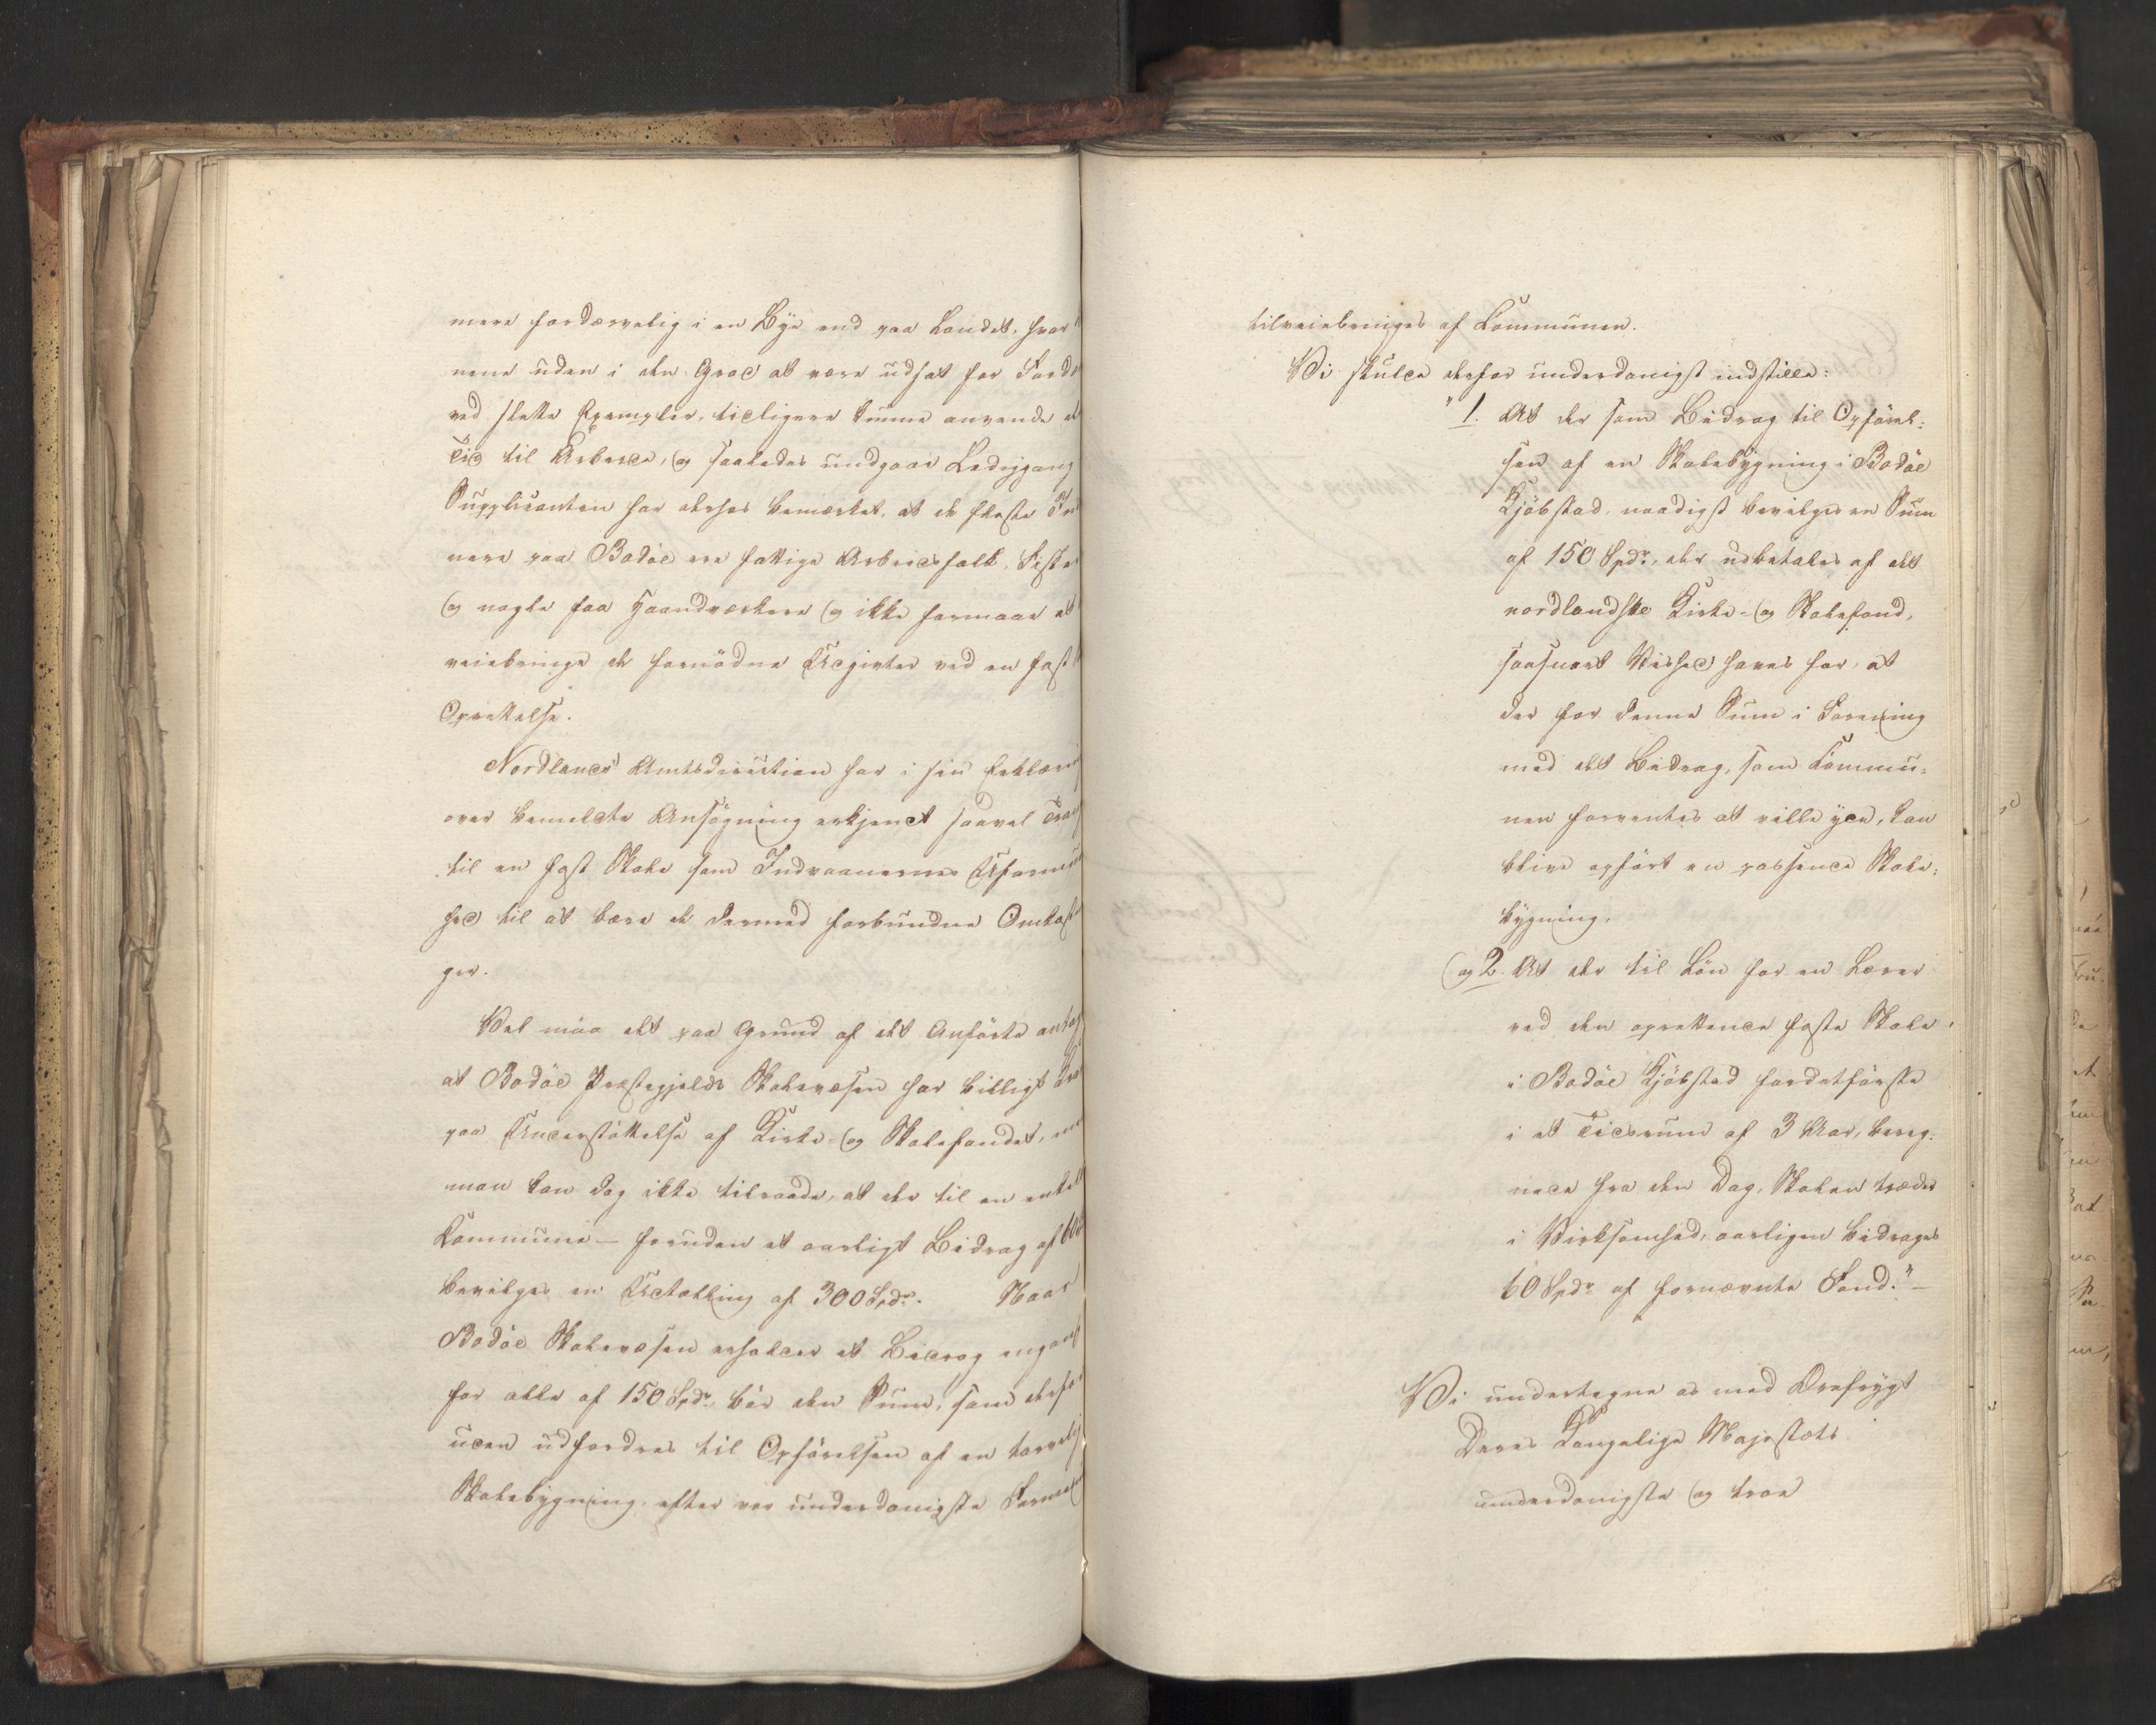 mere fordærvelig i en Bye end paa Landet, hvor
nene uden i den Grad at være udsat for Ford
ved slette Exempler, tidligere kunne anvende d
Tid til Arbeide, og saaledes undgaae Lediggang
Supplicanten har derhos bemærket, at de fleste In
nere paa Bodøe ere fattige Arbeidsfolk, Fiske
og nogle faa Haandværkere og ikke formaae at
veiebringe de fornødne Udgivter ved en fast
Oprettelse.
Nordlands Amtsdirection har i sin Erklæri
over bemeldte Ansøgning erkjendt saavel Tran
til en fast Skole som Indvaanernes Uformu
hed til at bære de dermed forbundne Omkost
ger.
Vel maa det paa Grund af det Anførte antag
at Bodøe Præstegjelds Skolevæsen har billigt Kra
paa Understøttelse af Kirke- og Skolefondet, me
man kan dog ikke tilraade, at der til en enkelt
Kommune – foruden et aarligt Bidrag af 60
bevilges en Udtælling af 300 Spdr. Naar
Bodøe Skolevæsen erholder et Bidrag engang
for alle af 150 Spdr., bør den Sum, som derfor
uden udfordres til Opførelsen af en tarvelig
Skolebygning, efter vor underdanigste Formen
tilveiebringes af Kommunen.
Vi skulle derfor underdanigst indstille:
"1. At der som Bidrag til Opførel:
sen af en Skolebygning i Bodøe
Kjøbstad, naadigst bevilges en Sum
af 150 Spdr., der udbetales af det
nordlandske Kirke- og Skolefond,
saasnart Vished haves for, at
der for denne Sum i Forening
med det Bidrag, som Kommu:
nen forventes at ville yde, kan
blive opført en passende Skole:
bygning.
og 2. At der til Løn for en Lærer
ved den oprettende faste Skole
i Bodøe Kjøbstad fordetførste
i et Tidsrum af 3 Aar, bereg:
nede fra den Dag, Skolen træder
i Virksomhed, aarligen bidrages
60 Spdr. af fornævnte Fond." –
Vi undertegne os med Ærefrygt
Deres Kongelige Majestæts
underdanigste og troe